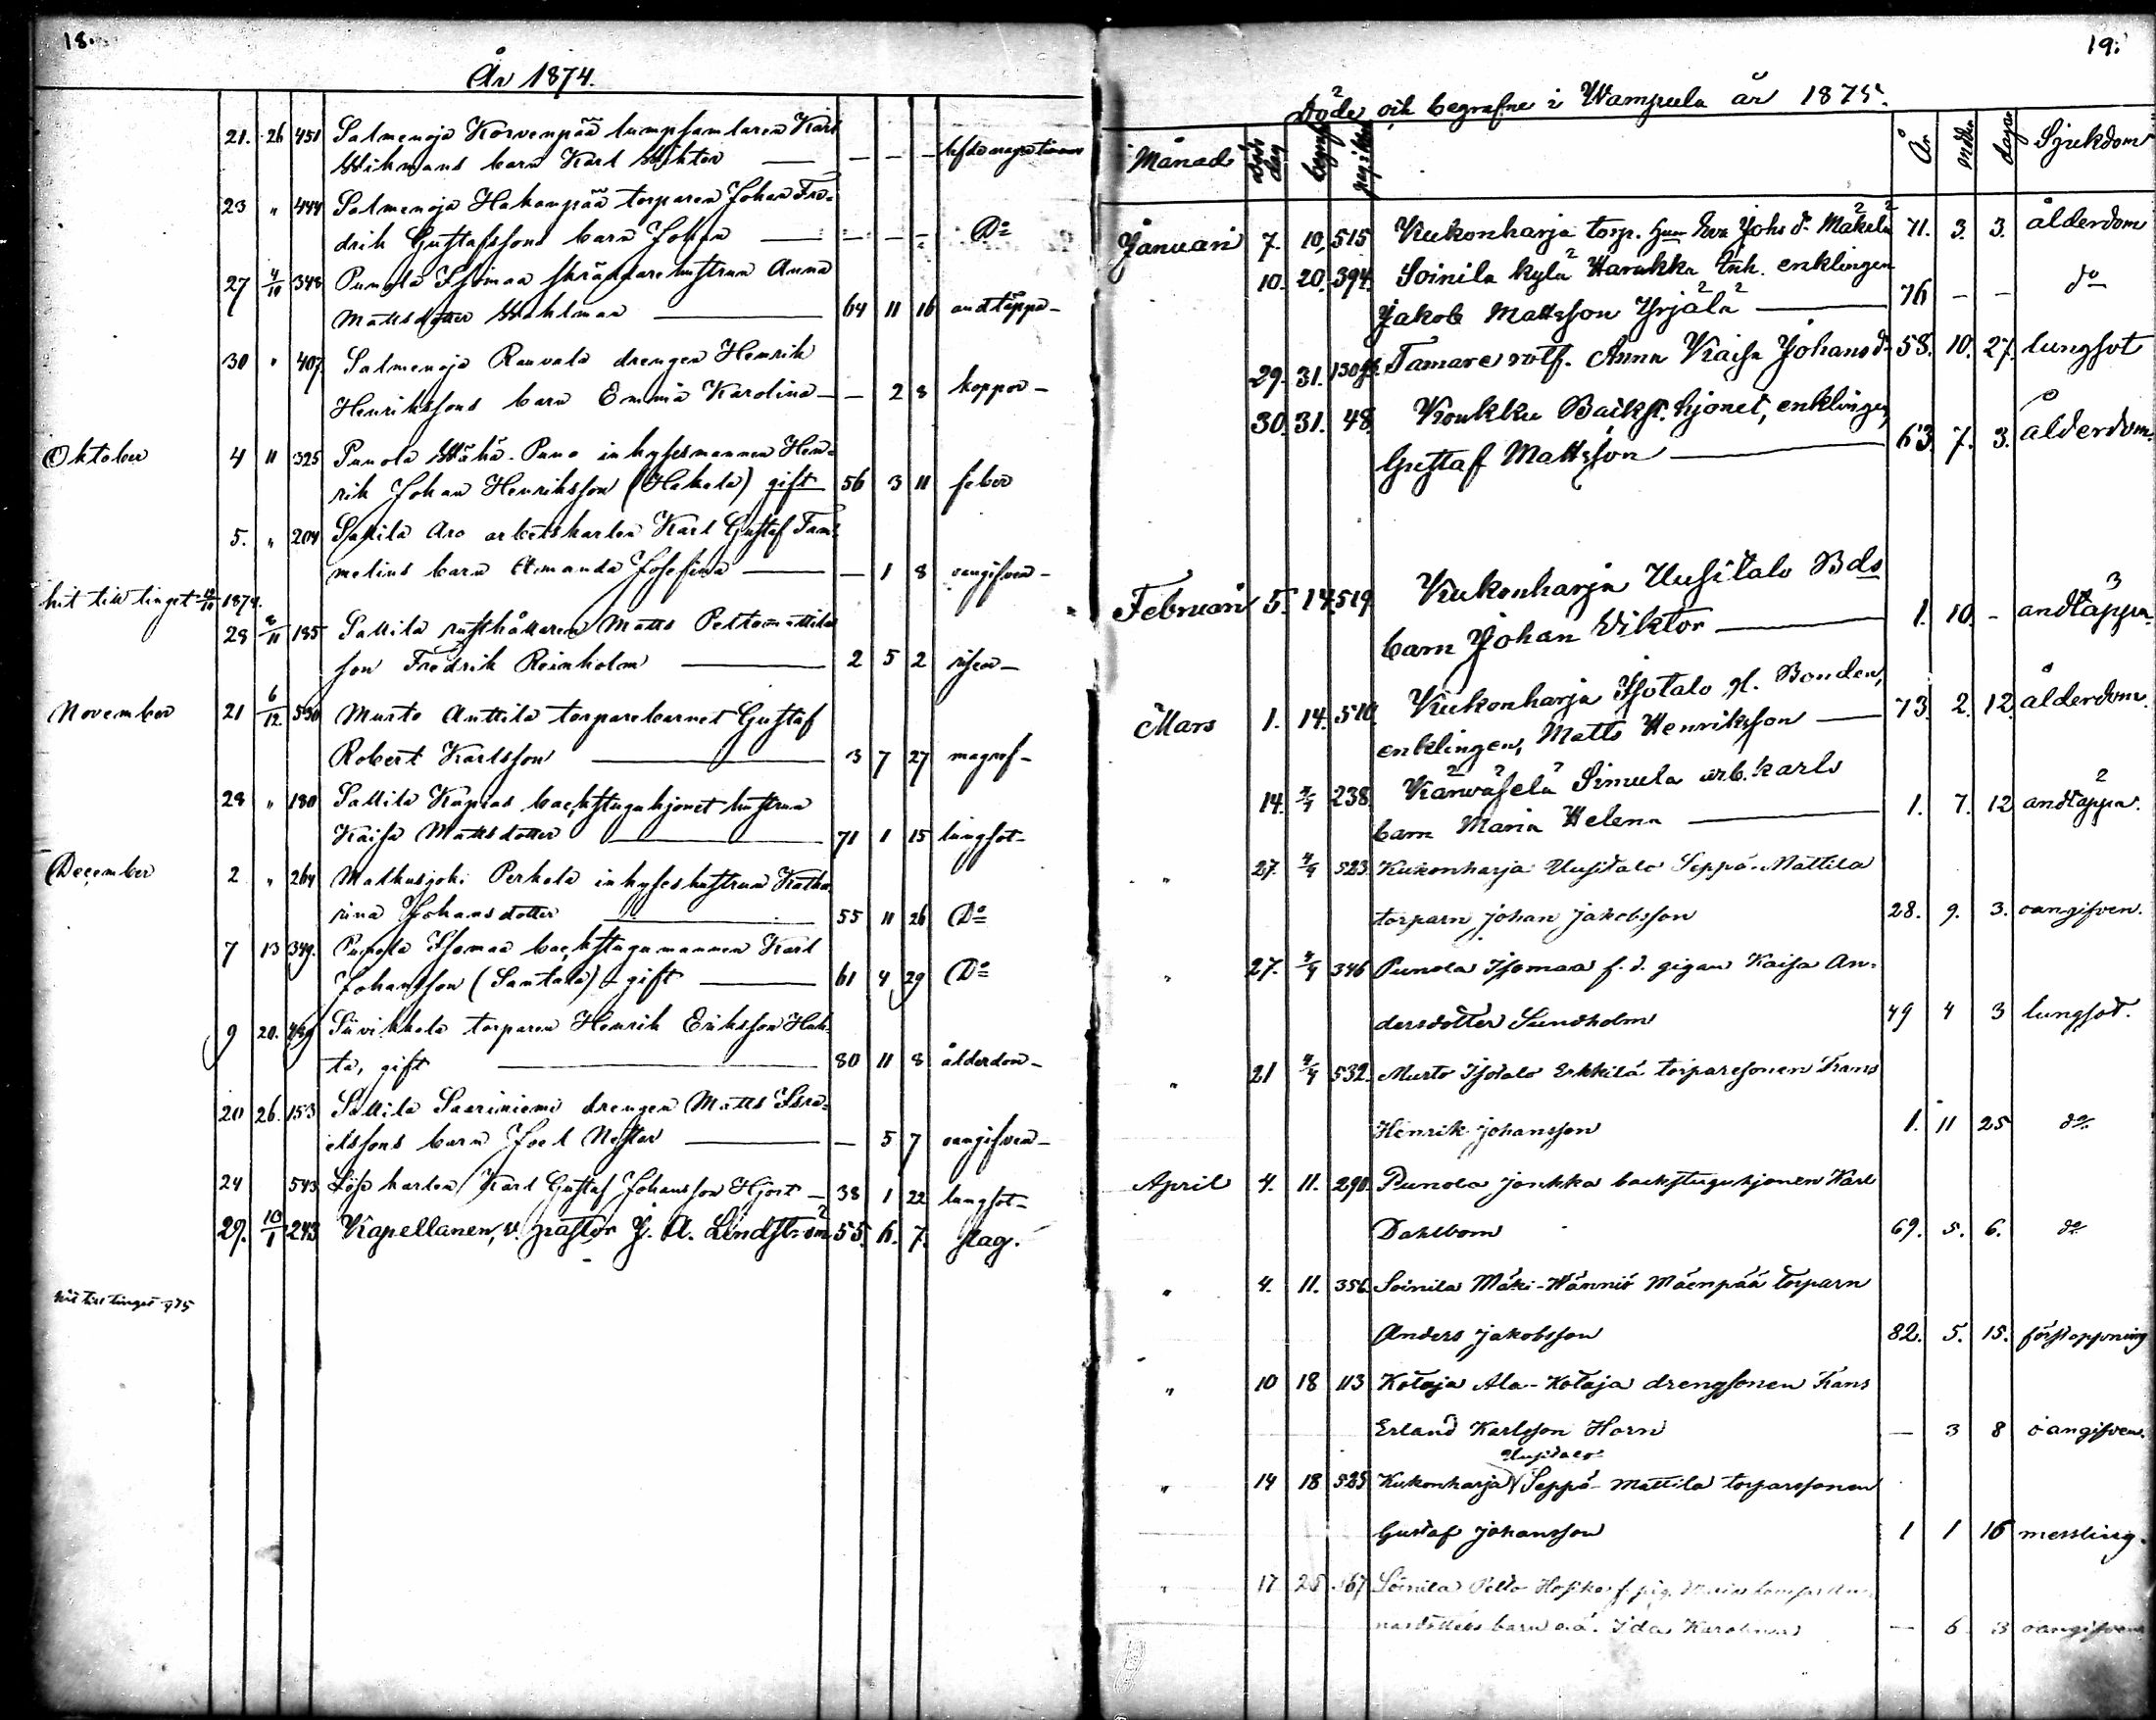 18.
År 1874.
21. 26 451 Salmenoja Korvenpää lumpsamlaren Karl
Wikmans barn Karl Wiktor — — — —
23 " 444 Salmenoja Hakanpää torparen Johan Fre-
drik Gustafssons barn Johan — — — — Do
27 4/10 348 Punola Isomaa skräddarehustrun Anna
Mattsdotter Wahlman — 64 11 16 andtäppa -
30 " 407 Salmenoja Rauvala drengen Henrik
Henrikssons barn Emmia Karolina — — 2 8 koppor -
Oktober 4 11 325 Punola Wähä-Puno inhysesmannen Hen-
rik Johan Henriksson (Hakala) gift 56 3 11 feber
5. " 204 Sallila Aro arbetskarlen Karl Gustaf Tam-
melins barn Amanda Josefina — — 1 8 oangifven -
hit till tinget 12/10 1874.
28 8/11 185 Sallila rusthållaren Matts Peltomattilas
son Fredrik Reinholm — 2 5 2 risen -
November 21 6/12 530 Murto Anttila torparebarnet Gustaf
Robert Karlsson — 3 7 27 magref -
28 " 180 Sallila Kapras backstuguhjonet hustrun
Kaisa Mattsdotter — 71 1 15 lungsot -
December 2 " 264 Matkusjoki Perkola inhyseshustrun Katha-
rina Johansdotter — 55 11 26 Do
7 13 349. Punola Isomaa backstugumannen Karl
Johansson (Santala) gift — 61 4 29 Do
9 20. 489 Siivikkala torparen Henrik Eriksson Huh-
ta, gift — 80 11 8 ålderdom -
20 26. 153 Sallila Saariniemi drengen Matts Isra-
elssons barn Joel Nestor — — 5 7 oangifven -
24 543 Löskarlen Karl Gustaf Johansson Hjort — 38 1 22 lungsot -
29. 10/1 243 Kapellanen, v. pastor J. A. Lindström 55. 6. 7. slag.
hit till tinget 875
19.
Döde och begrafne i Wampula år 1875.
Månad Död dag begraf. pag. i kb. År mdr dagar Sjukdom
Januari 7. 10. 515 Kukonharja torp. hun Eva Johs dr Mäkelä 71. 3. 3. ålderdom
10. 20. 394. Soinila kylä Harukka inh. enklingen
Jakob Mattsson Yrjälä — 76 — — do
29. 31. 130 Tamare rotf. Anna Kaisa Johansdr 58. 10. 27. lungsot
30. 31. 48. Koukku Backst. hjonet, enklingen,
Gustaf Mattsson — 63. 7. 3. ålderdom.
Februari 5. 14. 519 Kukonharja Uusitalo Bds
barn Johan Viktor — 1. 10. - andtäppa.
Mars 1. 14. 510 Kukonharja Isotalo gl. Bonden,
enklingen, Matts Henriksson — 73. 2. 12. ålderdom.
14. 4/4 238. Karwäselä Simula arb. karls
barn Maria Helena — 1. 7. 12 andtäppa.
" 27. 4/4 523 Kukonharja Uusitalo Seppä-Mattila
torparn Johan Jakobsson 28. 9. 3. oangifven.
" 27. 4/4 346 Punola Isomaa f.d. pigan Kaisa An-
dersdotter Sundholm 49 4 3 lungsot.
" 21 4/4 532. Murto Isotalo Erkkilä torparesonen Frans
Henrik Johansson 1. 11 25 do
April 4. 11. 290. Punola Jonkka backstuguhjonen Karl
Dahlbom 69. 5. 6. do
" 4. 11. 356. Soinila Mäki-Hannio Mäenpää torparn
Anders Jakobsson 82. 5. 15. förstoppning
" 10 18 113 Kotaja Ala-Kotaja drengsonen Frans
Erland Karlsson Horn — 3 8 oangifven.
Uusitalo
" 14 18 525 Kukonharja Seppä-Mattila torparsonen
Gustaf Johansson 1 1 16 messling.
" 17 25 Soinila Pelto
barn o.ä. Ida Karolina — 6 3 oangifven